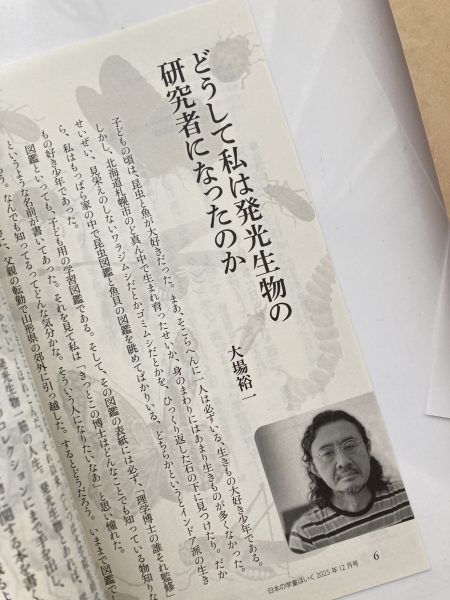 どうして私は発光生物の
研究者になったのか
大場裕一
子どもの頃は、昆虫と魚が大好きだった。まあ、そこらへんに一人は必ずいる、生きもの大好き少年である。
しかし、北海道札幌市のど真ん中で生まれ育ったせいか、身のまわりにはあまり生きものが多くなかった。
せいぜい、見栄えのしないワラジムシだとかゴミムシだとかを、ひっくり返した石の下に見つけたり。だか
ら、私はもっぱら家の中で昆虫図鑑と魚貝の図鑑を眺めてばかりいる、どちらかというとインドア派の生き
もの好き少年であった。
図鑑といっても、子ども用の学習図鑑である。そして、その図鑑の表紙には必ず、「理学博士の誰それ監修」
というような名前が書いてあった。それを見て私は「きっとこの博士はどんなことでも知っている物知りな
なんでも知ってるってどんな気分かな。そういう人になりたいなあ」と思い憧れた。
父親の転勤で山形県の郊外に引っ越した。するとどうだろう。いままで図鑑で
6
日本の学童ほいく 2025年12月号